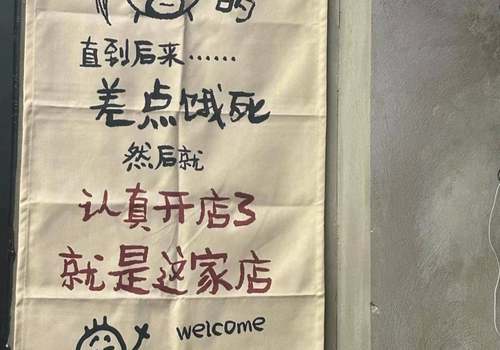 的
直到后来……
差点饿死
然后就
认真开店了
就是这家店
welcome